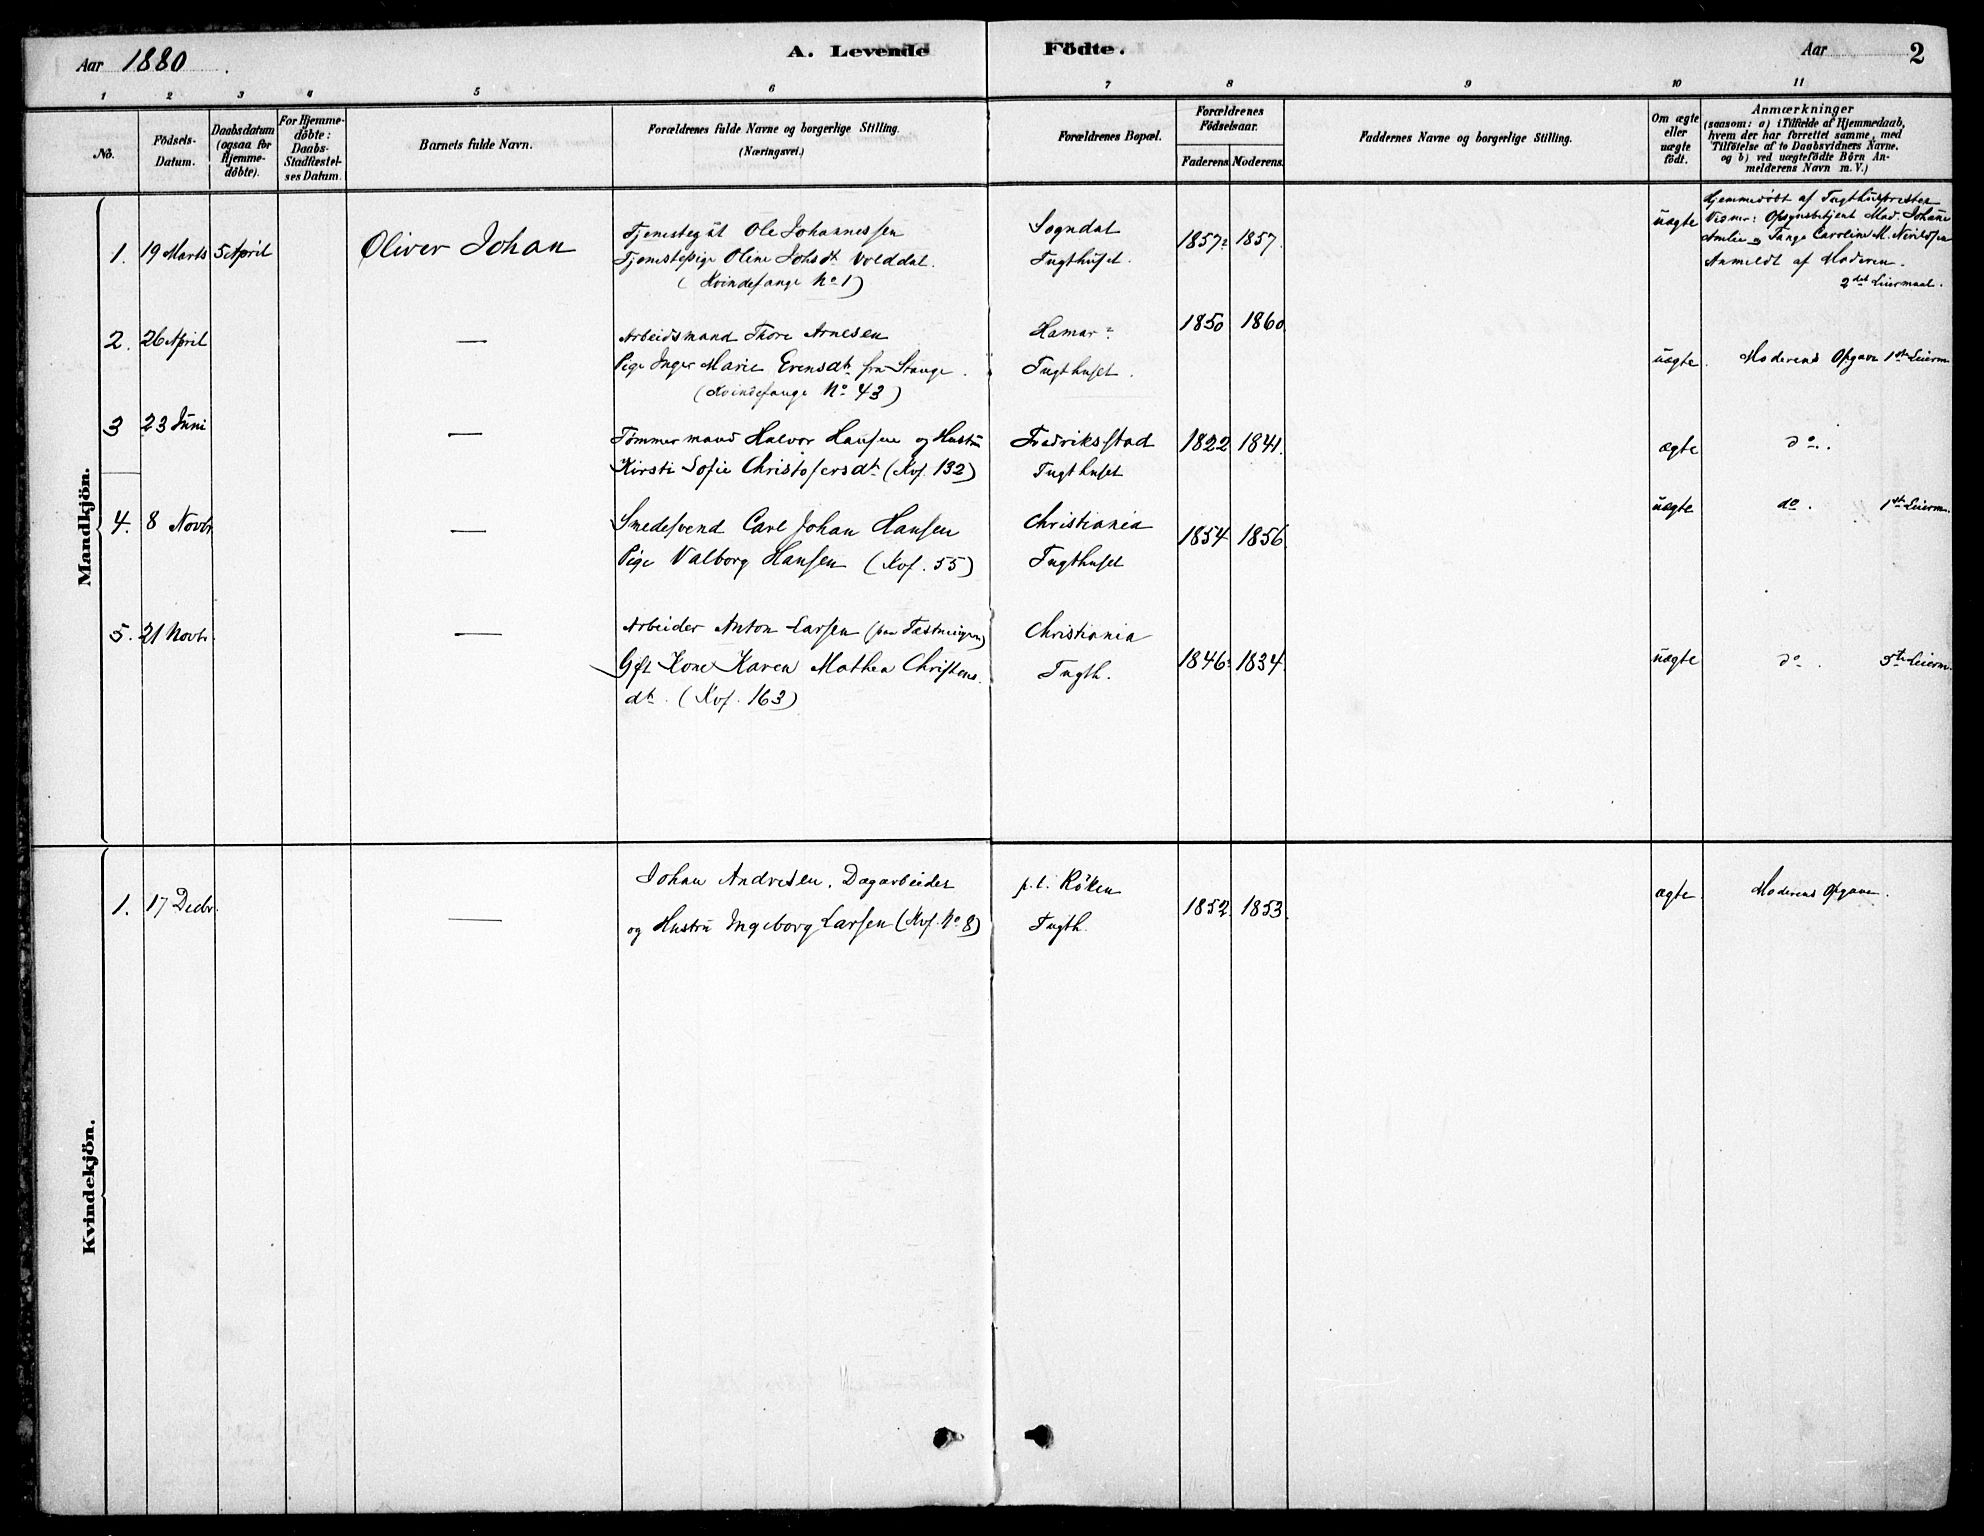 Aar 1880.
A. Levende Födte.
Aar 2
1 2 3 4 5 6 7 8 9 10 11
No.
Födsels-Datum.
Daabsdatum (ogsaa for Hjemmedöbte).
For Hjemmedöbte: Daabs-Stadfæstelses Datum.
Barnets fulde Navn.
Forældrenes fulde Navne og borgerlige Stilling. (Næringsvei.)
Forældrenes Bopæl.
Forældrenes Födselsaar.
Faderens. Moderens.
Faddernes Navne og borgerlige Stilling.
Om ægte eller uægte födt.
Anmærkninger
(saasom: a) i Tilfælde af Hjemmedaab,
hvem der har forrettet samme, med
Tilföielse af to Daabsvidners Navne.
og b) ved uægtefödte Börn Anmelderens Navn m. V.)
Mandkjön.
1. 19 Marts 5 April Oliver Johan
Tjenestegut Ole Johannessen
Tjenestepige Oline Johsdt. Volddal.
(Kvindefange No 1)
Sogndal
Tugthuset.
1857? 1857.
uægte
Hjemmedøbt af Tugthuspresten
Vidner: Opsynsbetjent Mad. Johanne
Amlie og Fange Caroline M. Nerilsen
Anmeldt af Moderen.
2det Leiermaal.
2. 26 April —
Arbeidsmand Thore Arnesen
Pige Inger Marie Evensdt. fra Stange.
(Kvindefange No 43)
Hamar?
Tugthuset.
1850 1860
uægte. Moderens Opgave 1ste Leierm.
3 23 Juni —
Tømmermand Halvor Hansen og Hustru
Kirsti Sofie Christofersdt. (Kvf. 132)
Fredriksstad
Tugthuset
1822 1841.
ægte do.
4. 8 Novbr —
Smedesvend Carl Johan Hansen
Pige Valborg Hansen (Kvf. 55)
Christiania
Tugthuset
1854 1856
uægte do. 1ste Leierm.
5. 21 Novbr. —
Arbeider Anton Larsen (paa Fæstningen)
Gift Kone Karen Mathea Christens
dt. (Kvf. 163)
Christiania
Tugth.
1846? 1834
uægte do. 5te Leierm.
Kvindekjön.
1. 17 Decbr. —
Johan Andresen, Dagarbeider
og Hustru Ingeborg Larsen (Kvf. No 8)
p.t. Røken
Tugth.
1852 1853
ægte. Moderens Opgave.